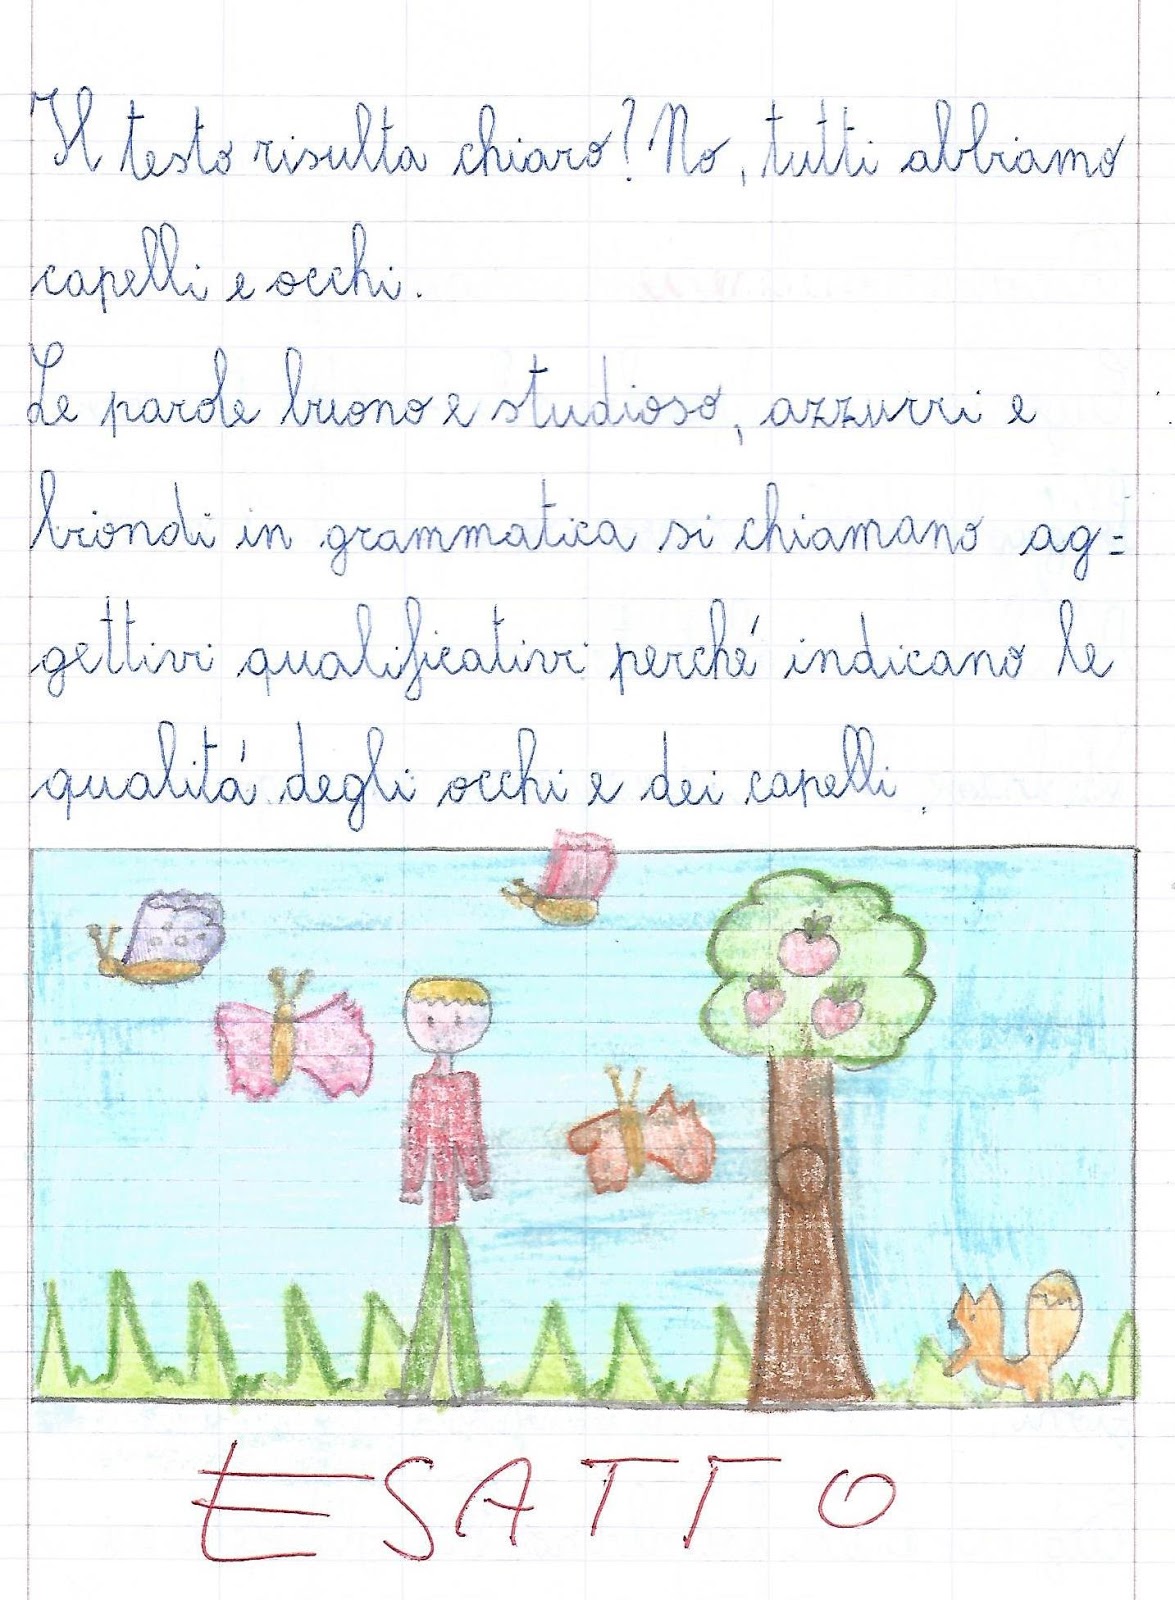 Il testo risulta chiaro? No, tutti abbiamo
capelli e occhi.
Le parole buono e studioso, azzurri e
biondi in grammatica si chiamano ag=
gettivi qualificativi perché indicano le
qualitá degli occhi e dei capelli.
ESATTO